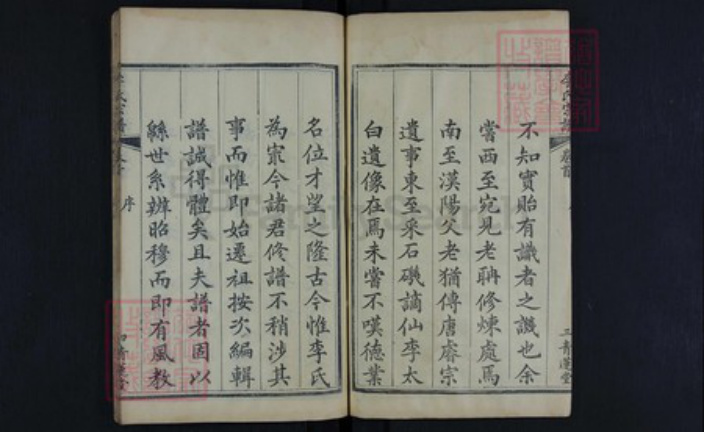 不知實貽有識者之譏也余
嘗西至宛見老聃修煉處焉
南至漢陽父老猶傳唐睿宗
遺事東至采石磯謫仙李太
白遺像在焉未嘗不嘆德業
名位才望之隆古今惟李氏
為最今諸君修譜不稍涉其
事而惟即始遷祖按次編輯
譜誠得體矣且夫譜者固以
緜世系辨昭穆而即有風教
序
李氏宗譜
卷首
三
青蓮堂